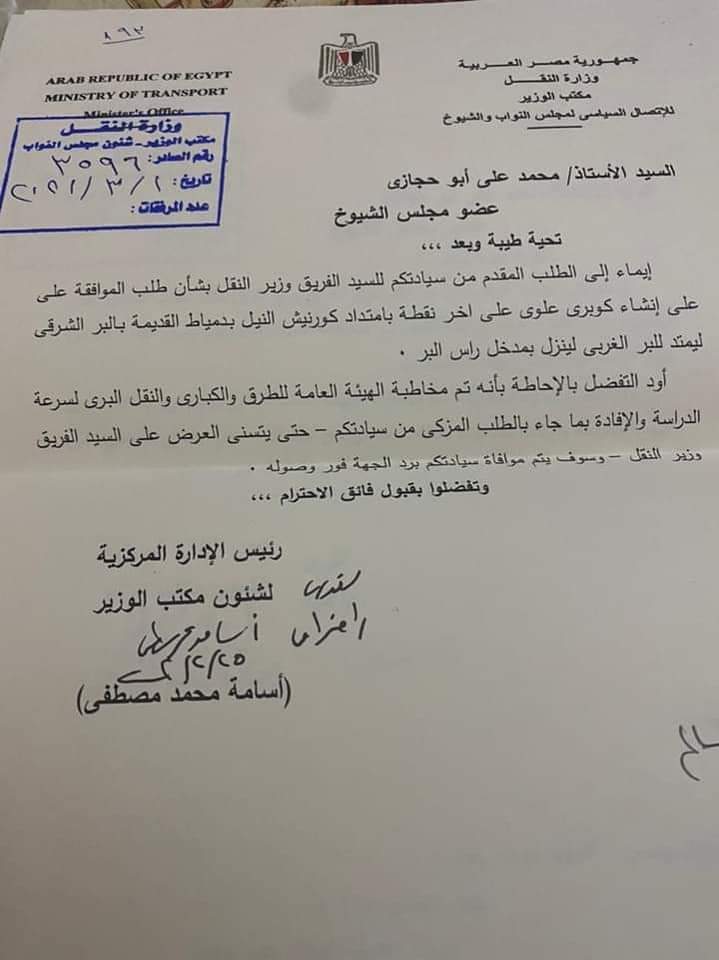 ٨٩٣
ARAB REPUBLIC OF EGYPT
MINISTRY OF TRANSPORT
Minister's Office
جمهورية مصر العربية
وزارة النقل
مكتب الوزير
للإتصال السياسى لمجلس النواب والشيوخ
وزارة النقل
مكتب الوزير - شئون مجلس النواب
رقم الصادر: ٣٥٩٦
تاريخ: ٢٠٢١/٣/١
عدد المرفقات:
السيد الأستاذ/ محمد على أبو حجازى
عضو مجلس الشيوخ
تحية طيبة وبعد ،،،
إيماء إلى الطلب المقدم من سيادتكم للسيد الفريق وزير النقل بشأن طلب الموافقة على
على إنشاء كوبرى علوى على اخر نقطة بامتداد كورنيش النيل بدمياط القديمة بالبر الشرقى
ليمتد للبر الغربى لينزل بمدخل راس البر .
أود التفضل بالإحاطة بأنه تم مخاطبة الهيئة العامة للطرق والكبارى والنقل البرى لسرعة
الدراسة والإفادة بما جاء بالطلب المزكى من سيادتكم – حتى يتسنى العرض على السيد الفريق
وزير النقل – وسوف يتم موافاة سيادتكم برد الجهة فور وصوله .
وتفضلوا بقبول فائق الاحترام ،،،
رئيس الإدارة المركزية
لشئون مكتب الوزير
٢/٢٥
(أسامة محمد مصطفى)